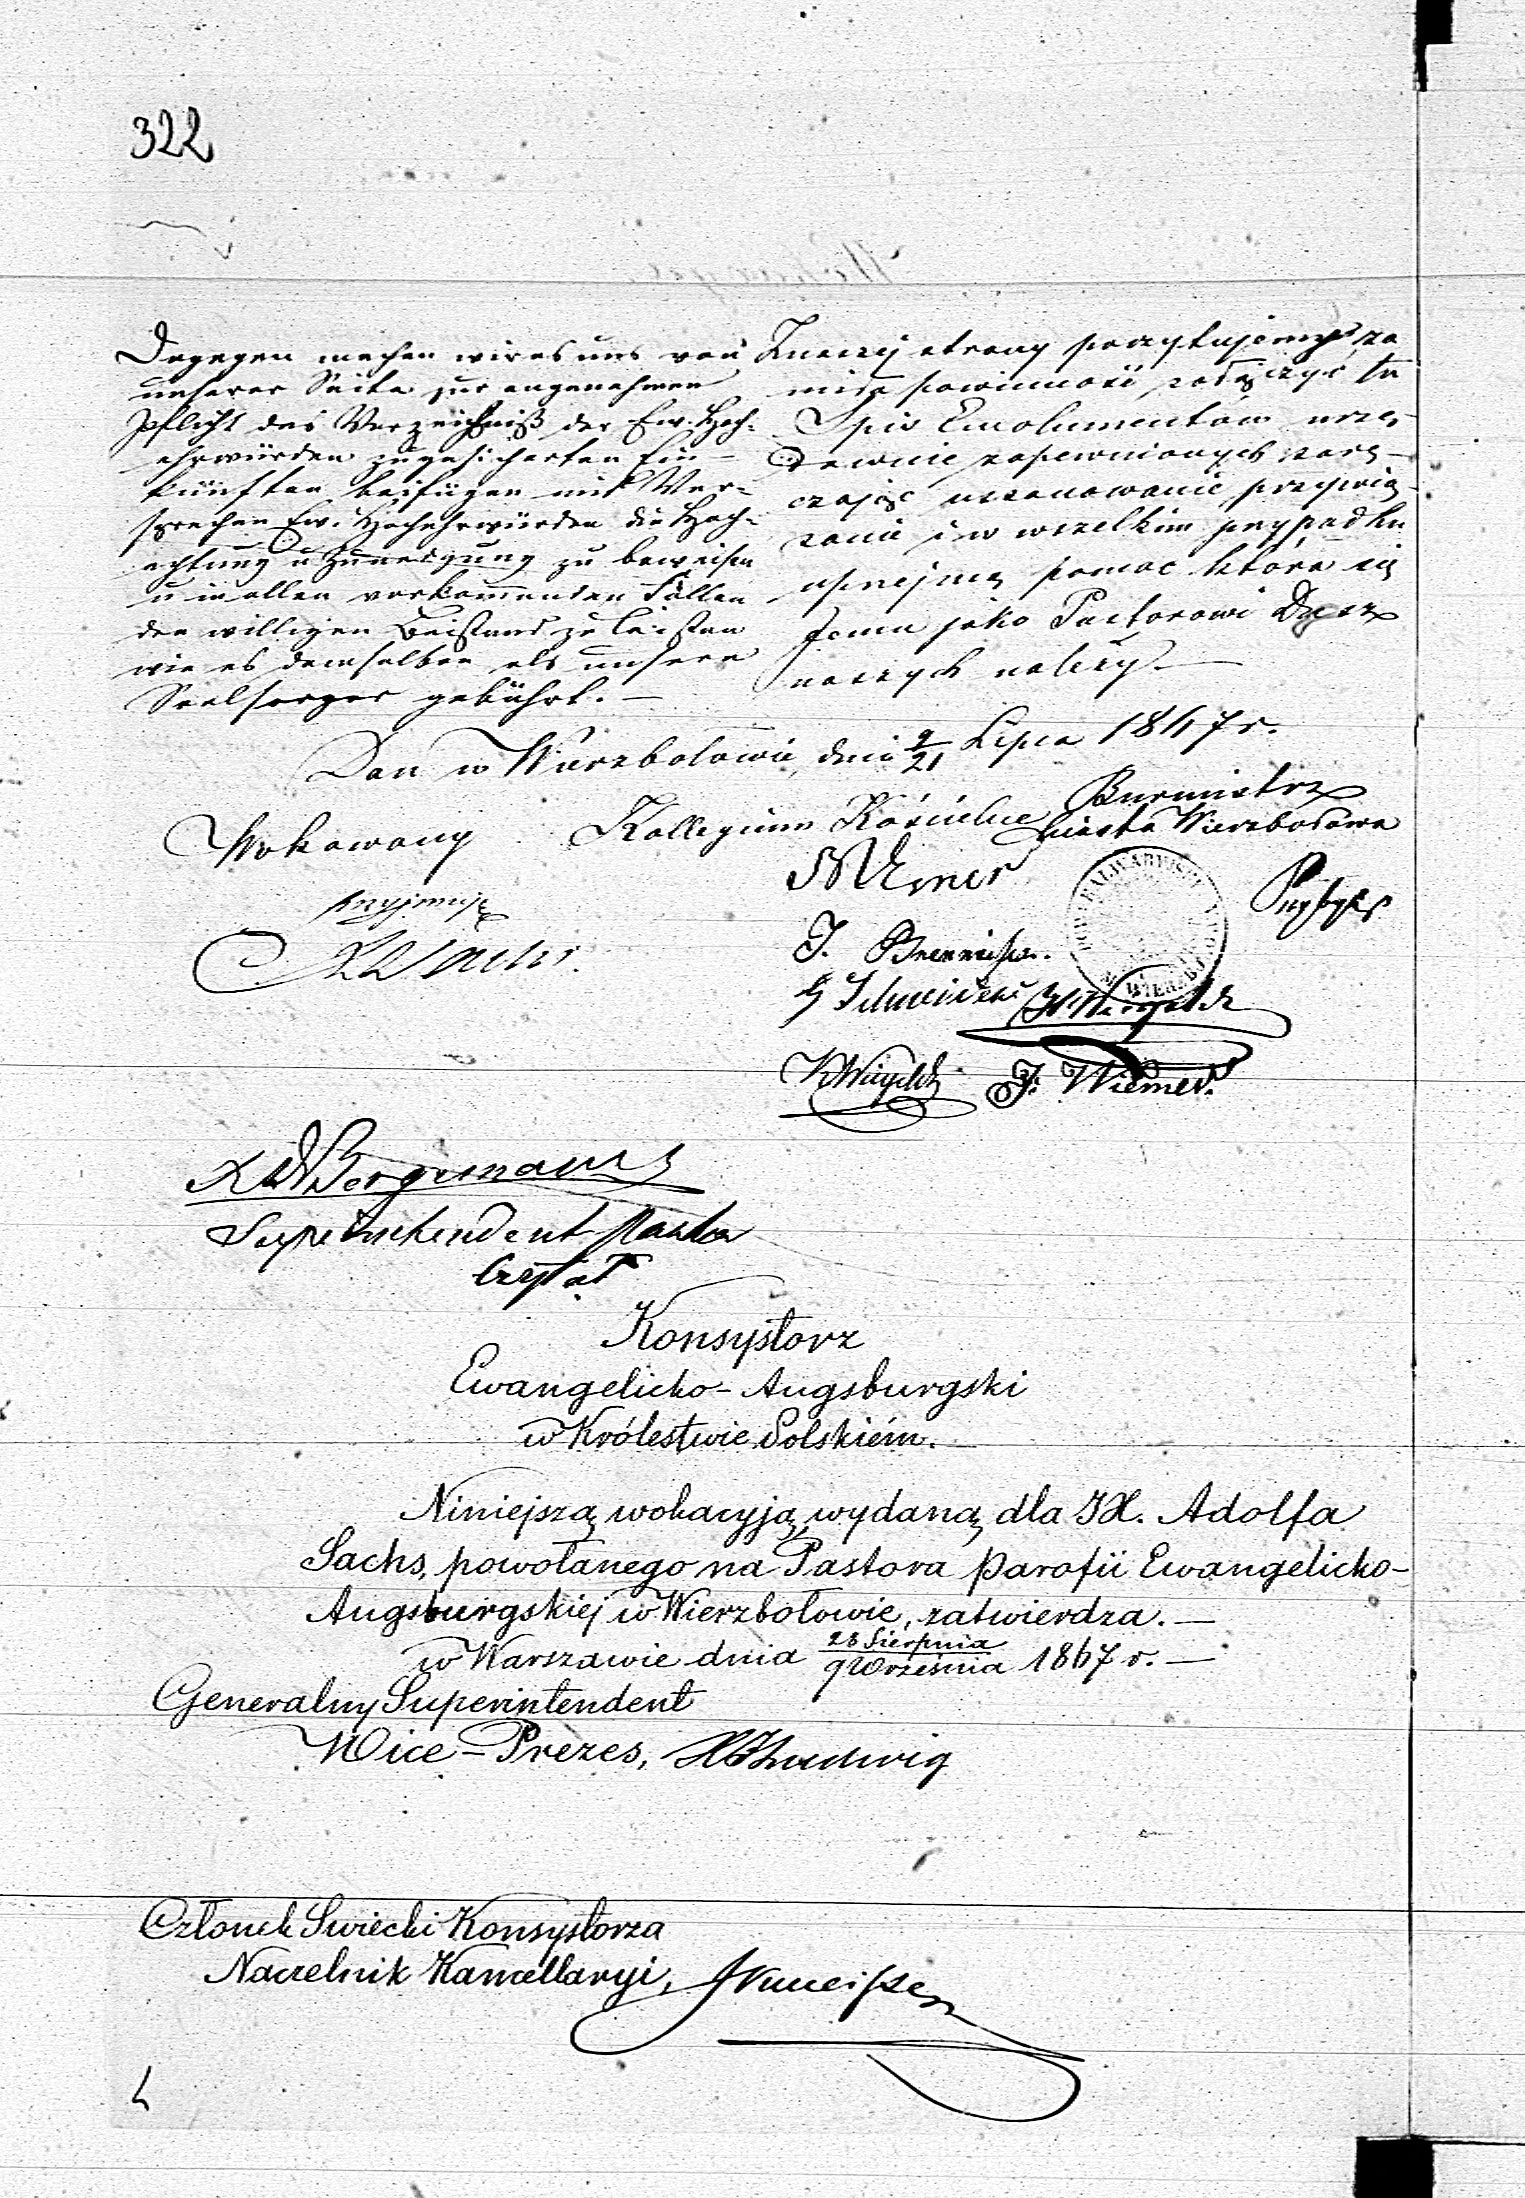 322
Dagegen machen wir es uns von
unserer Seite zur angenehmen
Pflicht das Verzeichniß der Ew. Hoch-
ehrwürden zugesicherten Ein-
künften beifügen mit Ver-
sprechen Ew. Hochehrwürden die Hoch-
achtung u Zuneigung zu beweisen
u in allen vorkommenden Fällen
den willigen Beistand zu leisten
wie es demselben als unsern
Seelsorger gebührt. —
Z naszej strony poczytujemy za
miłą powinność załączyć tu
Spis Emolumentów urzę-
downie zapewnionych zarę-
czając uszanowanie przywią-
zanie i w wszelkim przypadku
uprzejmą pomoc która się
Jemu jako Pastorowi Dusz
naszych należy. —
Dan w Wierzbołowie, dnia 9/21 Lipca 1867 r.
Wokowany
Kollegium Kościelne
Burmistrz
Miasta Wierzbołowa
przyjmuję
J. Wiemer.
Superintendent Pastor
Czytał
Konsystorz
Ewangelicko-Augsburgski
w Królestwie Polskiém. —
Niniejszą wokacyją, wydaną dla JX. Adolfa
Sachs, powołanego na Pastora parafii Ewangelicko-
Augsburgskiej w Wierzbołowie, zatwierdza. —
w Warszawie dnia 28 Sierpnia/9 Września 1867 r. —
Generalny Superintendent
Wice-Prezes, Ludwig
Członek Swiecki Konsystorza
Naczelnik Kancellaryi,